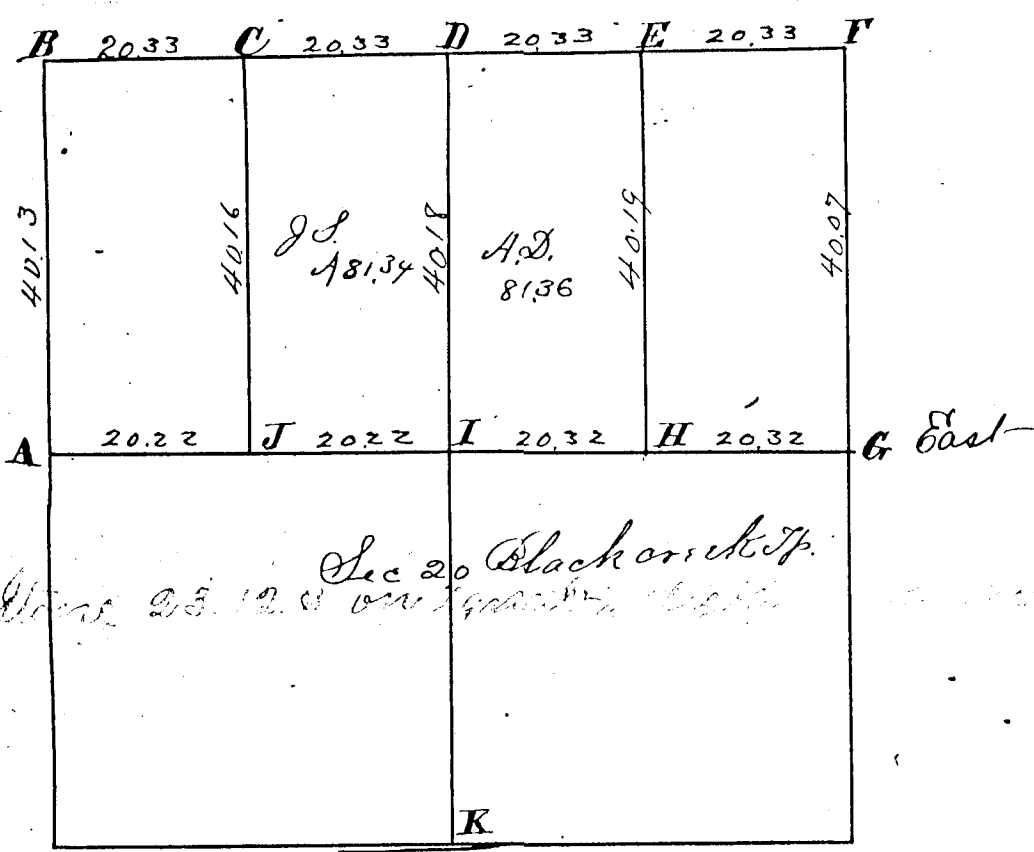 B 20.33 C 20.33 D 20.33 E 20.33 F
40.13 40.16 40.18 40.19 40.07
J S.
A 81.34
A.D.
81.36
A 20.22 J 20.22 I 20.32 H 20.32 G East
Sec 20 Blackcreek Tp.
K